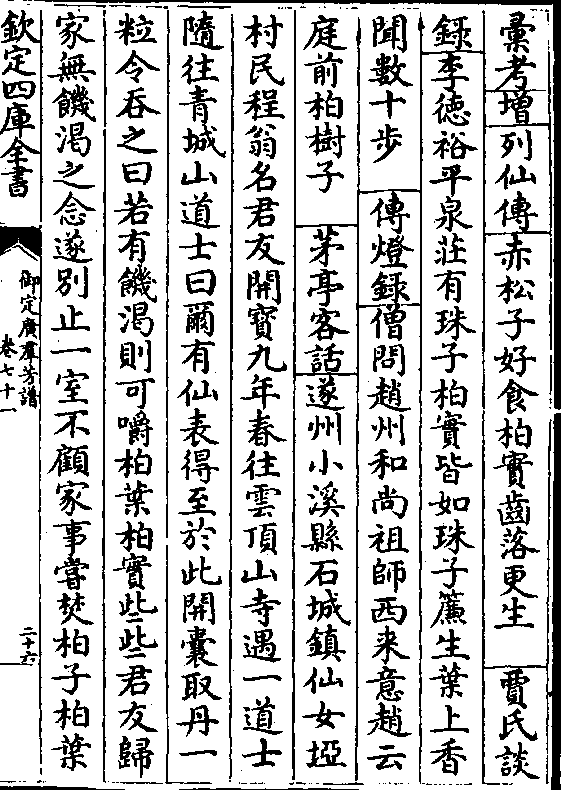 彙考增列仙傳赤松子好食柏實齒落更生　賈氏談
錄李徳裕平泉莊有珠子柏實皆如珠子簾生葉上香
聞數十步　傳燈錄僧問趙州和尚祖師西来意趙云
庭前柏樹子　茅亭客話遂州小溪縣石城鎮仙女埡
村民程翁名君友開寳九年春往雲頂山寺遇一道士
隨往青城山道士曰爾有仙表得至於此開囊取丹一
粒令吞之曰若有饑渴則可嚼柏葉柏實些些君友歸
家無饑渴之念遂别止一室不顧家事嘗焚柏子柏葉
欽定四庫全書
御定廣羣芳譜
卷七十一
二十六